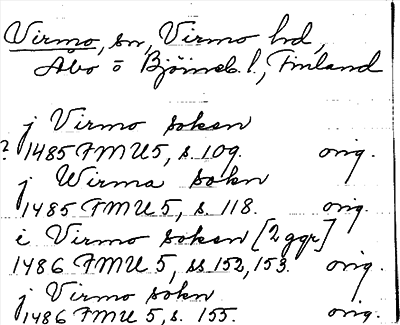 Virmo, sn, Virmo hd,
Åbo o Björneb. l., Finland
j Virmo soken
? 1485 FMU 5, s. 109. orig.
j Wirma sokn
1485 FMU 5, s. 118. orig.
i Virmo soken [2 ggr]
1486 FMU 5, ss 152, 153. orig.
j Virmo sokn
1486 FMU 5, s. 155. orig.